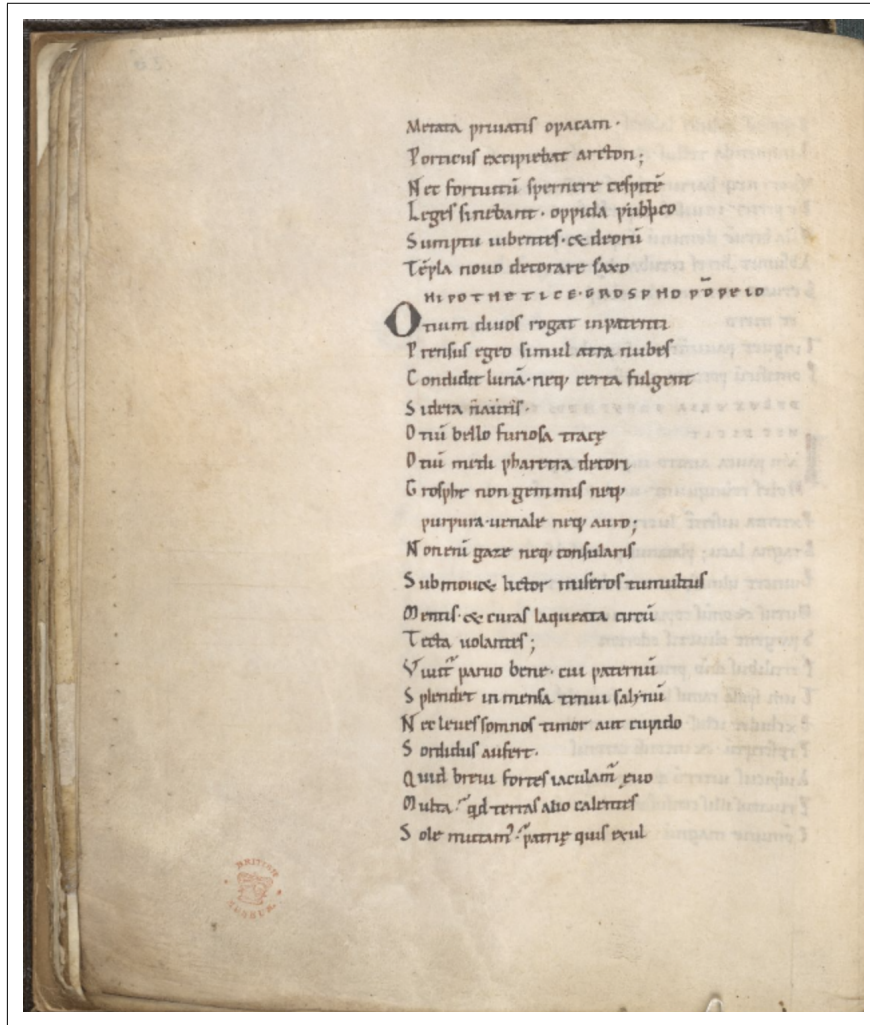 Metata priuatis opacam·
Porticus excipiebat arcton;
Nec fortuitū spernere cespitē
Leges sinebant· oppida publico
Sumptu iubentes· & deorū
Tēpla nouo decorare saxo
HIPOTHETICE·GROSPHO
Otium diuos rogat inpatenti
Prensus egeo simul atra nubes
Condidit lunā· neq; certa fulgent
Sidera nautis·
Otiū bello furiosa tracę
Otiū medi pharetra decori
Grosphe non gemmis neq;
purpura·uenale neq; auro;
Non enī gaze neq; consularis
Submou& lictor miseros tumultus
Mentis·& curas laqueata circū
Tecta uolantes;
Viuit̄ paruo bene· cui paternū
Splendet in mensa tenui salynū
Nec leues somnos timor aut cupido
Sordidus aufert·
Quid breui fortes iaculam̄ ęuo
Multa· qd terras alio calentes
Sole mutam᷒· patrię quis exul
BRITISH
MUSEUM